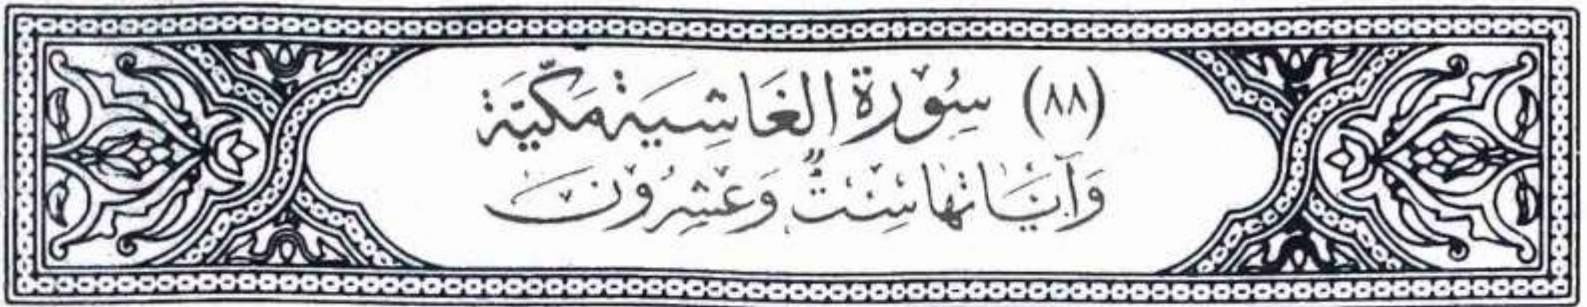 (٨٨) سُورَة الغَاشِيَة مَكِّيَّة
وَآيَاتهَا سِتٌّ وَعشرُون